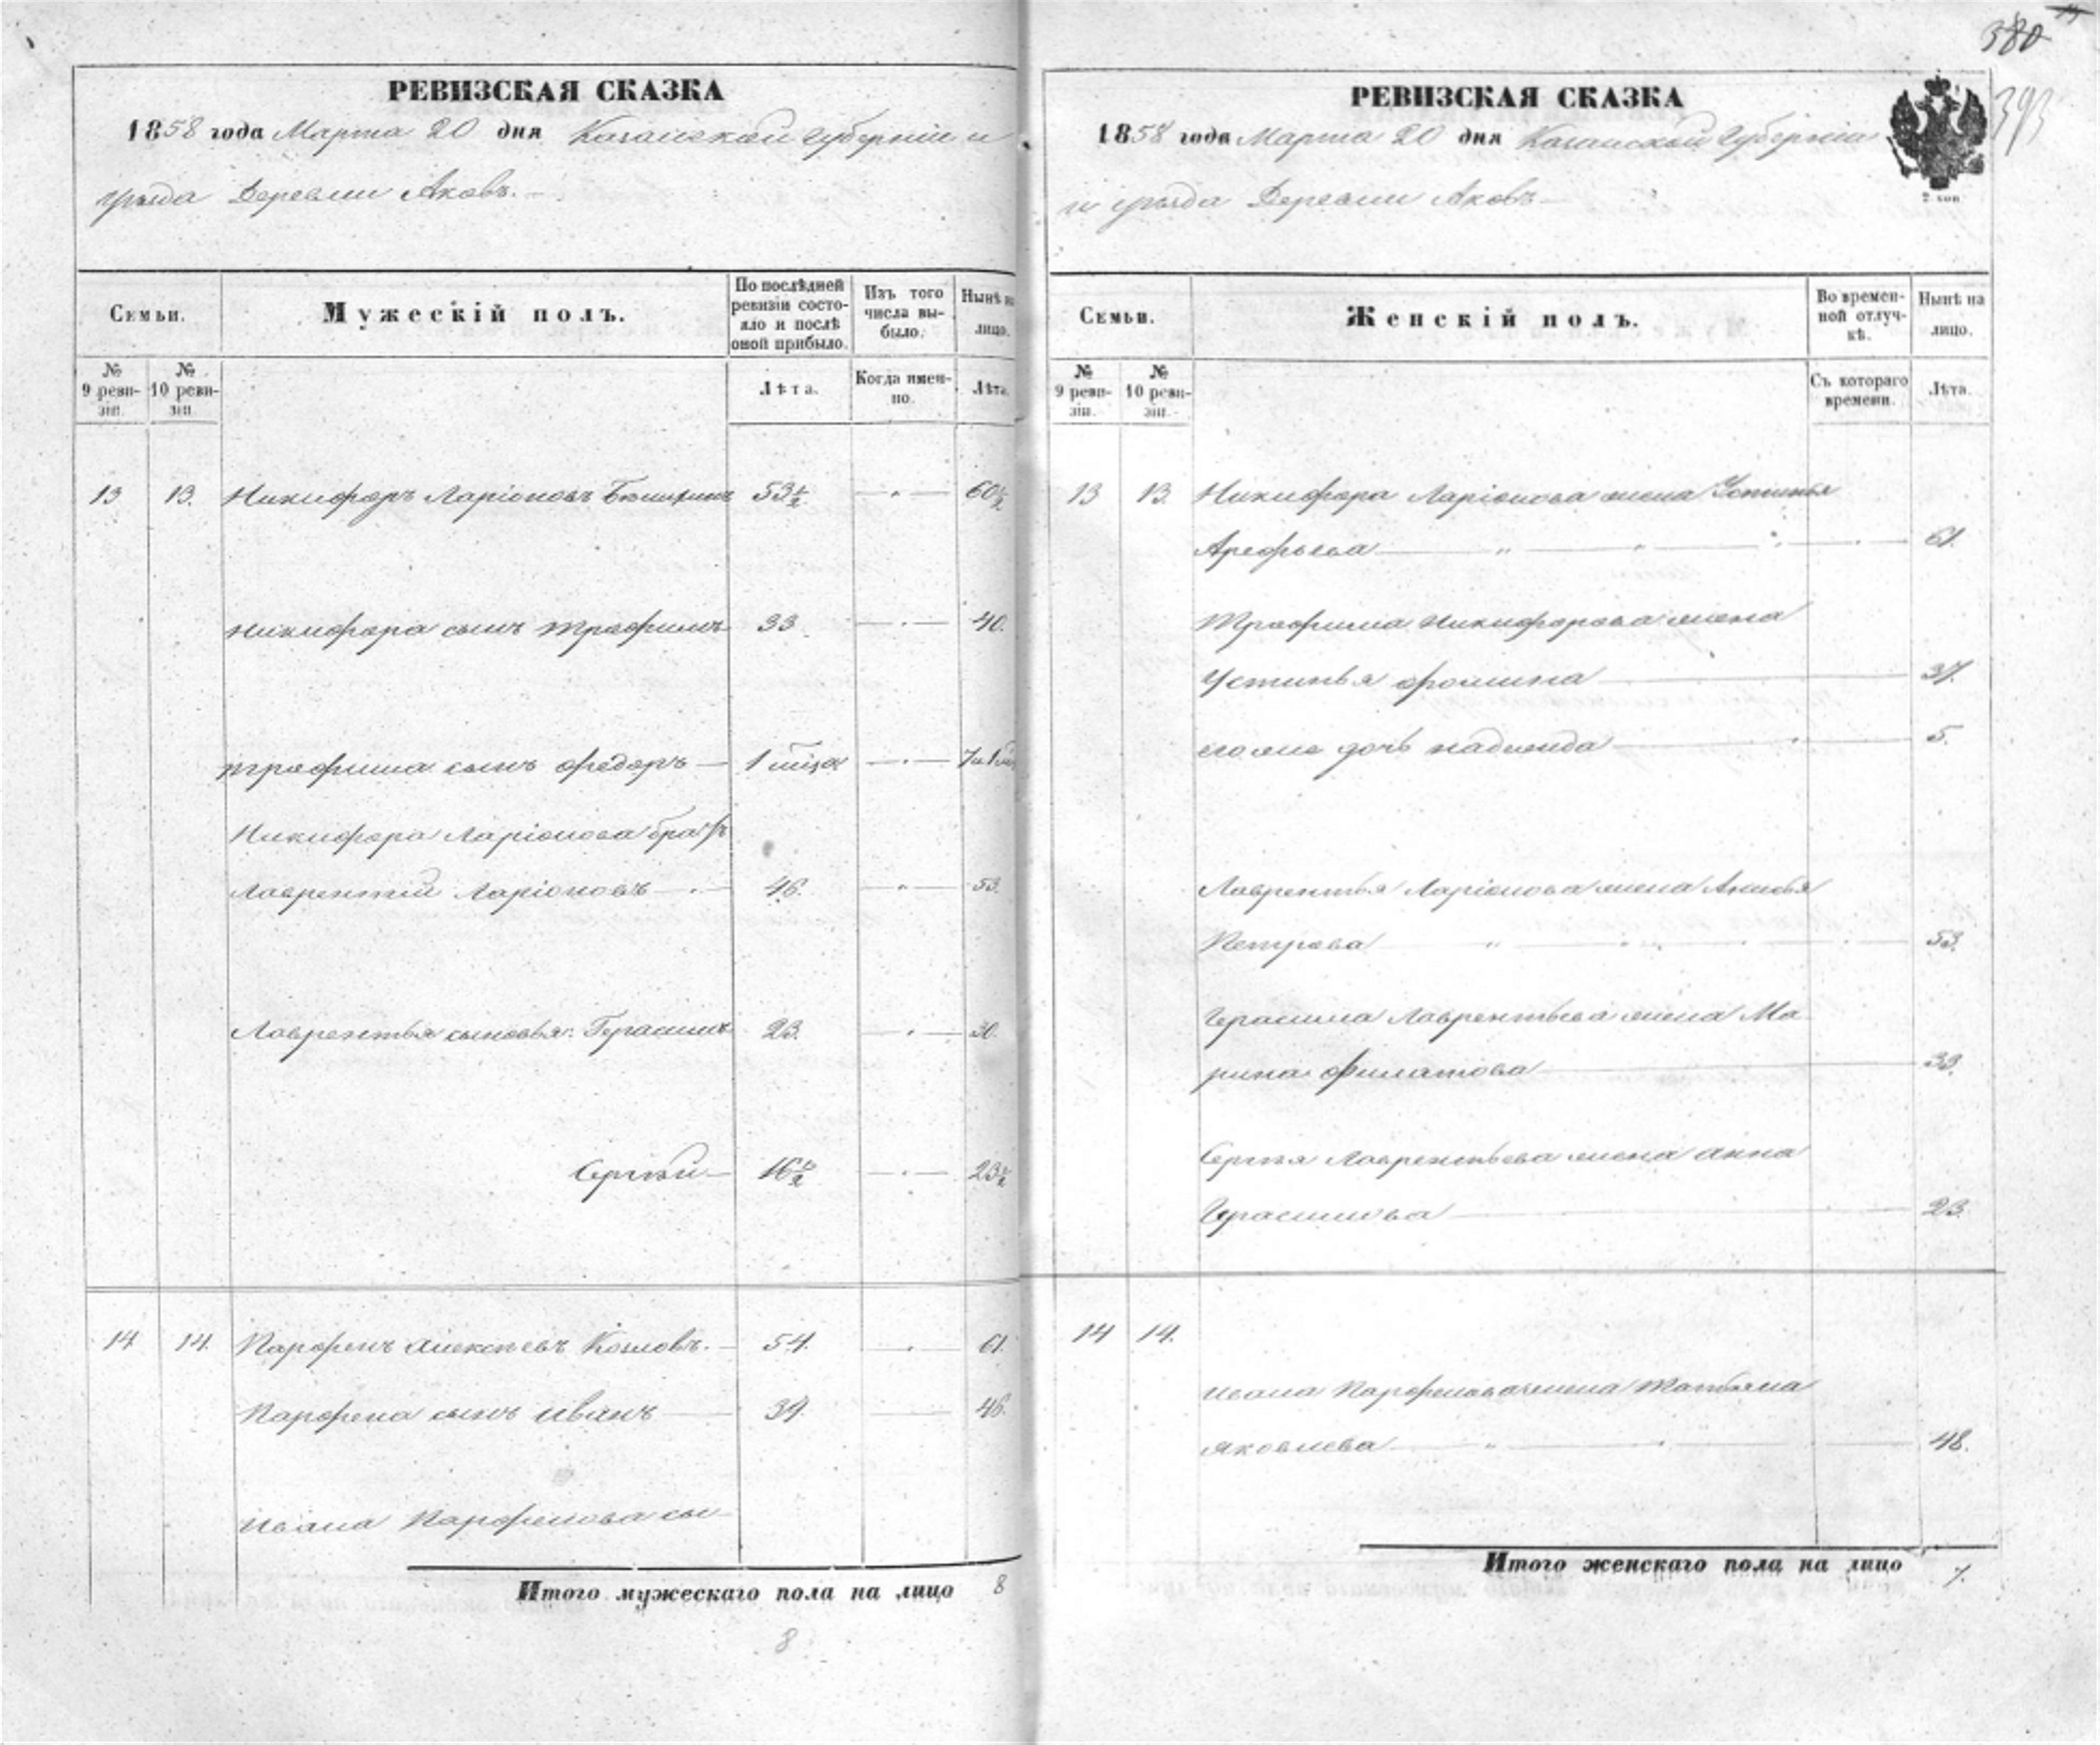 380
393
РЕВИЗСКАЯ СКАЗКА
1858 года Марта 20 дня Казанской Губерніи и
уѣзда Деревни Аковъ.
Семьи.
Мужескій полъ.
По послѣдней ревизіи состояло и послѣ оной прибыло.
Изъ того числа выбыло.
Нынѣ на лицо.
№ 9 ревизіи.
№ 10 ревизіи.
Лѣта.
Когда именно.
Лѣта.
13 13. Никифоръ Ларіоновъ 53½ 60½
Никифора сынъ Трофимъ 33. 40.
Трофима сынъ Федоръ 1 мѣсяц 7 и 1
Никифора Ларіонова братъ
Лаврентій Ларіоновъ 46. 53.
Лаврентья сыновья: Герасимъ 23. 30.
Сергѣй 16½ 23½
14 14. Парфенъ Алексѣевъ Козловъ. 54. 61.
Парфена сынъ Иванъ 39. 46.
Ивана Парфенова сы-
Итого мужескаго пола на лицо 8
8
РЕВИЗСКАЯ СКАЗКА
1858 года Марта 20 дня Казанской Губерніи
и уѣзда Деревни Аковъ
2 коп
Семьи.
Женскій полъ.
Во временной отлучкѣ.
Нынѣ на лицо.
№ 9 ревизіи.
№ 10 ревизіи.
Съ котораго времени.
Лѣта.
13 13. Никифора Ларіонова жена Устинья
Арефьева 61.
Трофима Никифорова жена
Устинья Фомина 37.
его же дочь Надежда 5.
Лаврентья Ларіонова жена
Петрова 53.
Герасима Лаврентьева жена Ма
рина Филатова 33.
Сергѣя Лаврентьева жена Анна
Герасимова 23.
14 14.
Ивана Парфенова жена Татьяна
Яковлева 48.
Итого женскаго пола на лицо 7.